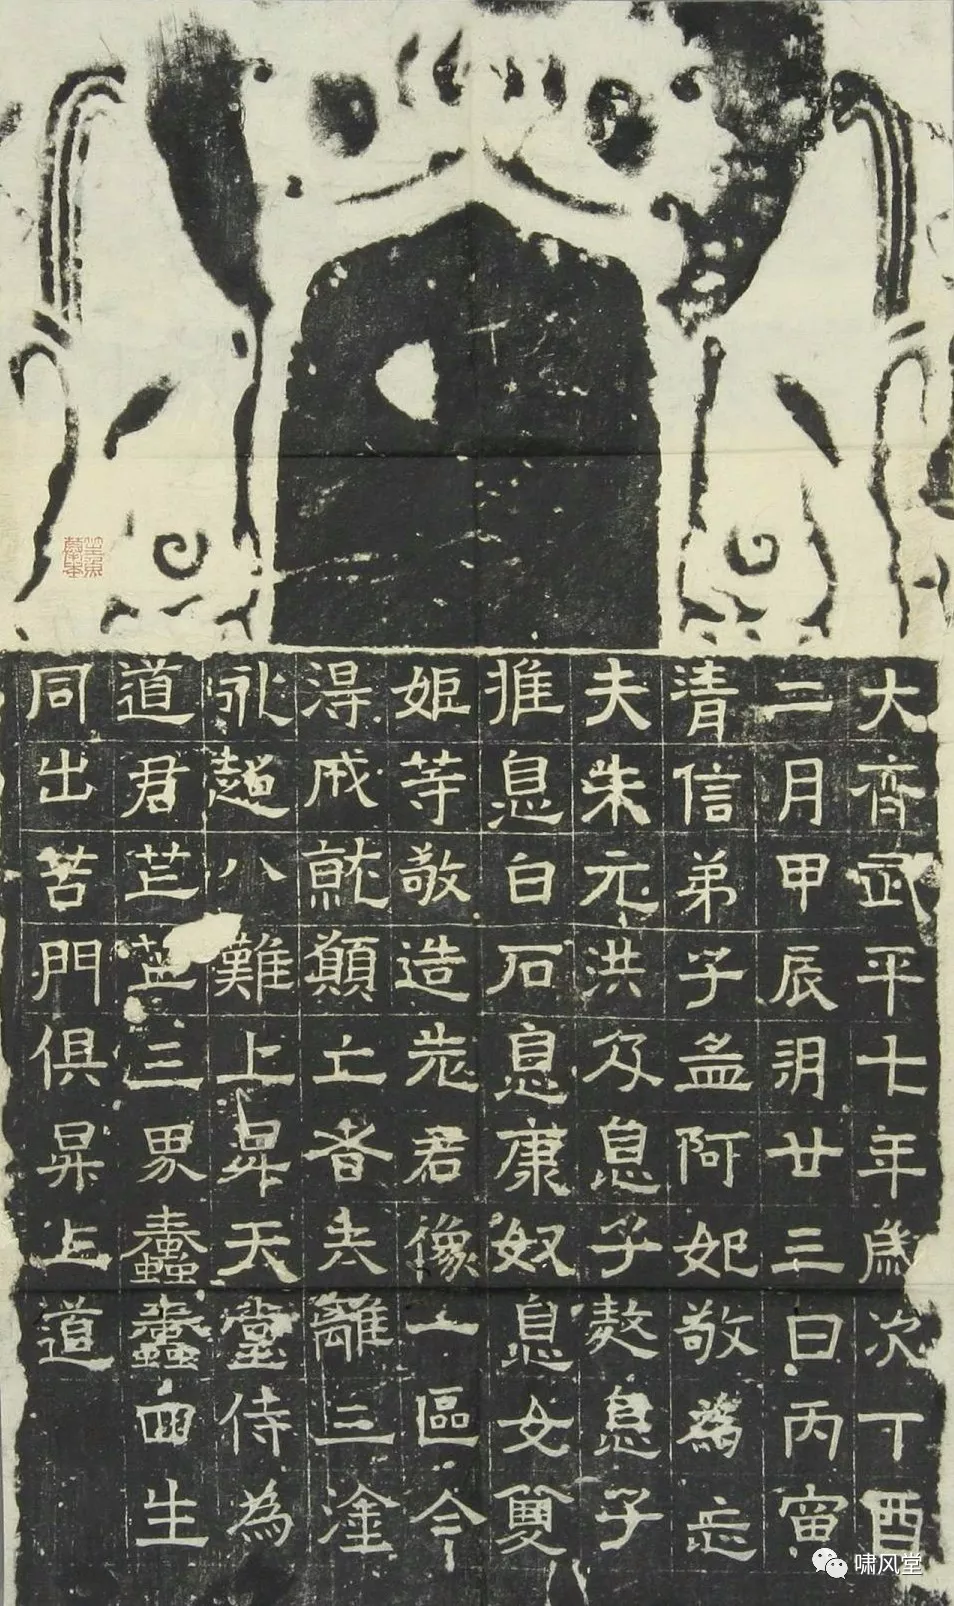 大齊武平七年歲次丁酉
二月甲辰朔廿三日丙寅
清信弟子孟阿妃敬為忘
夫朱元洪及息子敖息子
推息白石息康奴息女雙
姬等敬造老君像一區今
得成就願亡者去離三塗
永超八難上昇天堂侍為
道君芒芒三界蠢蠢四生
同出苦門俱昇上道
啸风堂